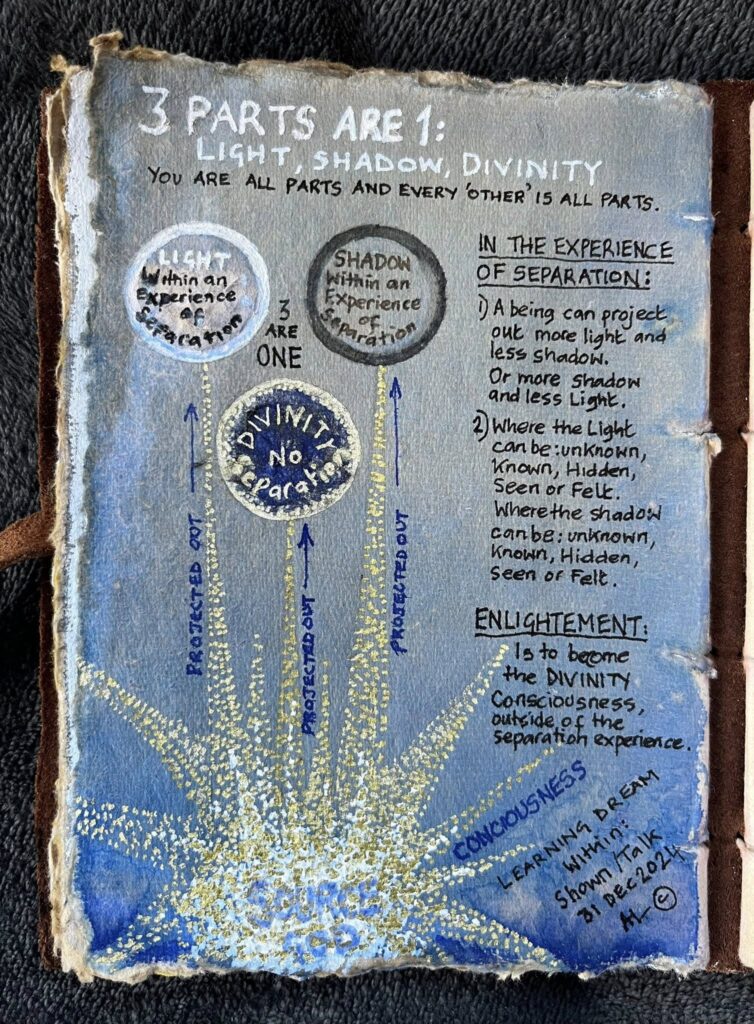 3 PARTS ARE 1:
LIGHT, SHADOW, DIVINITY
YOU ARE ALL PARTS AND EVERY 'OTHER' IS ALL PARTS.
LIGHT
Within an
Experience
of
Separation
3
ARE
ONE
SHADOW
Within an
Experience
of
Separation
DIVINITY
No
Separation
PROJECTED OUT
PROJECTED OUT
PROJECTED OUT
IN THE EXPERIENCE
OF SEPARATION:
1) A being can project
out more light and
less shadow.
Or more shadow
and less Light.
2) Where the Light
can be: unknown,
Known, Hidden,
Seen or Felt.
Where the shadow
can be: unknown,
Known, Hidden,
Seen or Felt.
ENLIGHTEMENT:
Is to become
the DIVINITY
Consciousness,
outside of the
separation experience.
CONCIOUSNESS
SOURCE
GOD
LEARNING DREAM
Within:
Shown/Talk
31 DEC 2024
AL ©